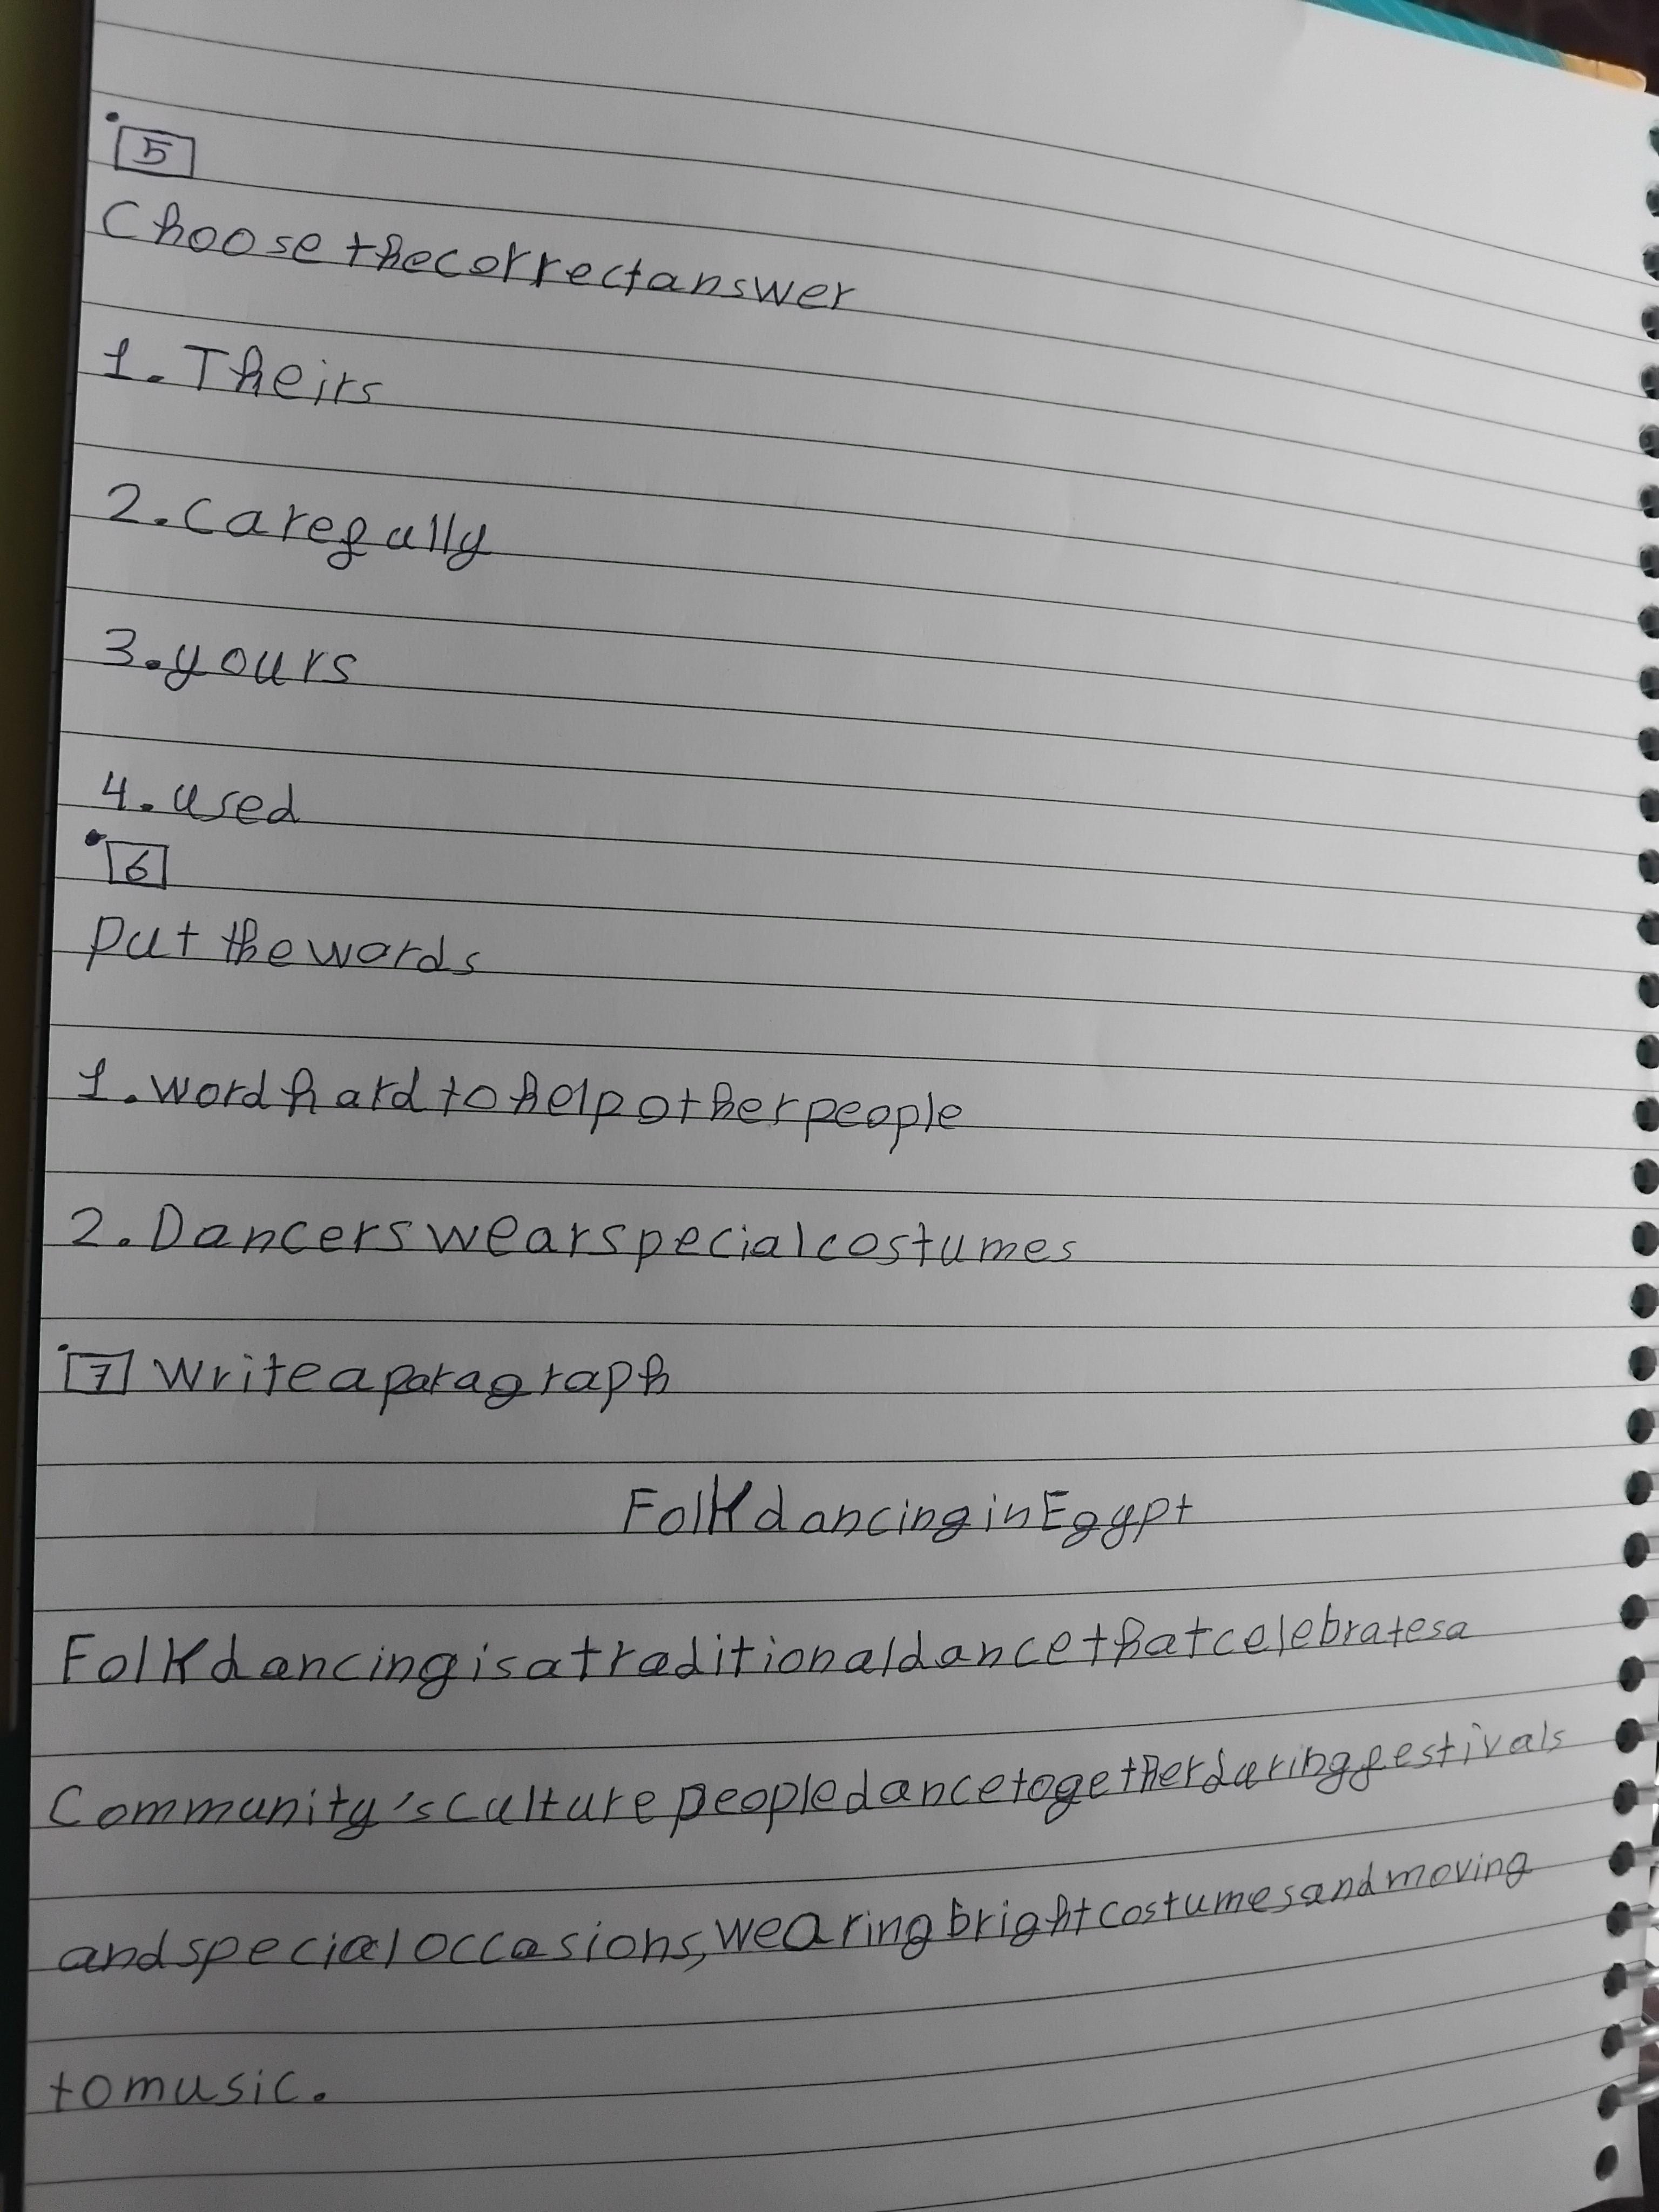 5
Choose the correct answer
1. Theirs
2. carefully
3. yours
4. used
6
put the words
1. word hard to help other people
2. Dancers wear special costumes
7 Write a paragraph
Folk dancing in Egypt
Folk dancing is a traditional dance that celebrates a
Community's culture people dance together during festivals
and special occasions, wearing bright costumes and moving
to music.